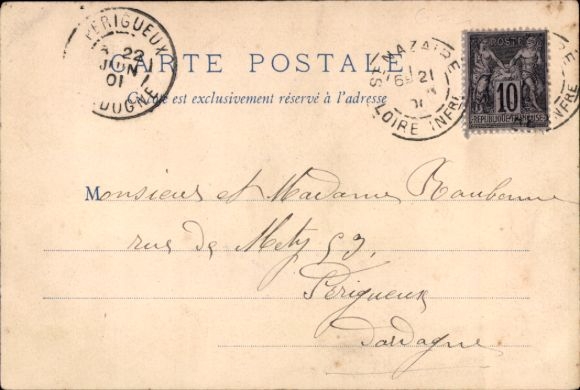 PERIGUEUX
22
JUIN
01
DOGNE
CARTE POSTALE
Ce côté est exclusivement réservé à l'adresse
ST NAZAIRE
21
01
LOIRE INFRE
POSTE
10
REPUBLIQUE FRANÇAISE
INFRE
Monsieur et Madame
rue de Metz 53,
Périgueux
Dordogne